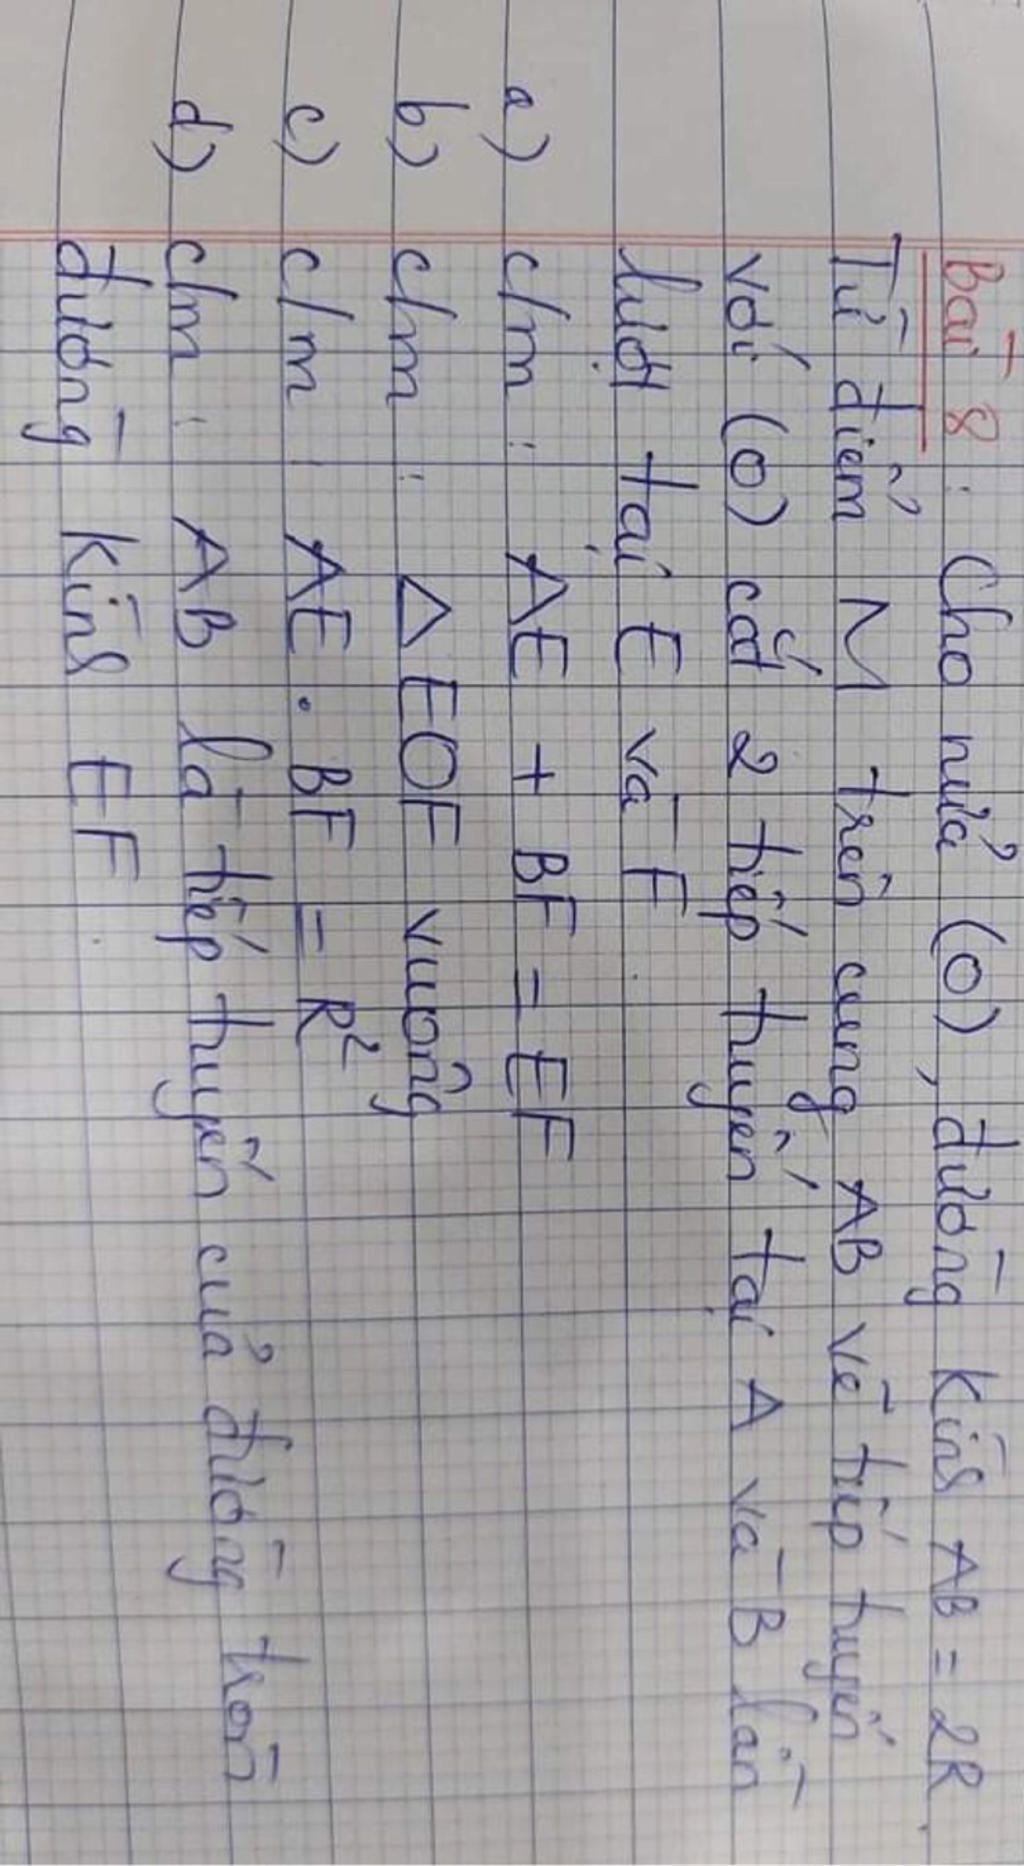 Bài 8: Cho nửa (O), đường kính AB = 2R.
Từ điểm M trên cung AB vẽ tiếp tuyến
với (O) cắt 2 tiếp tuyến tại A và B lần
lượt tại E và F.
a) c/m: AE + BF = EF
b) c/m: △EOF vuông
c) c/m: AE . BF = R²
d) c/m: AB là tiếp tuyến của đường tròn
đường kính EF.